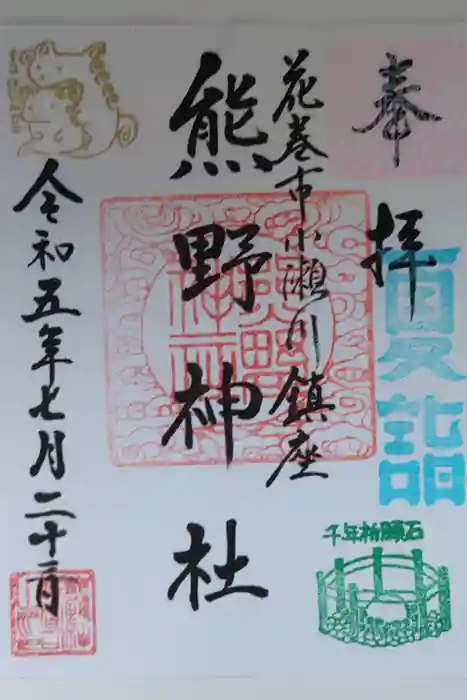 奉拝
夏詣
千年祈願石
花巻市小瀬川鎮座
熊野神社
令和五年七月二十二日